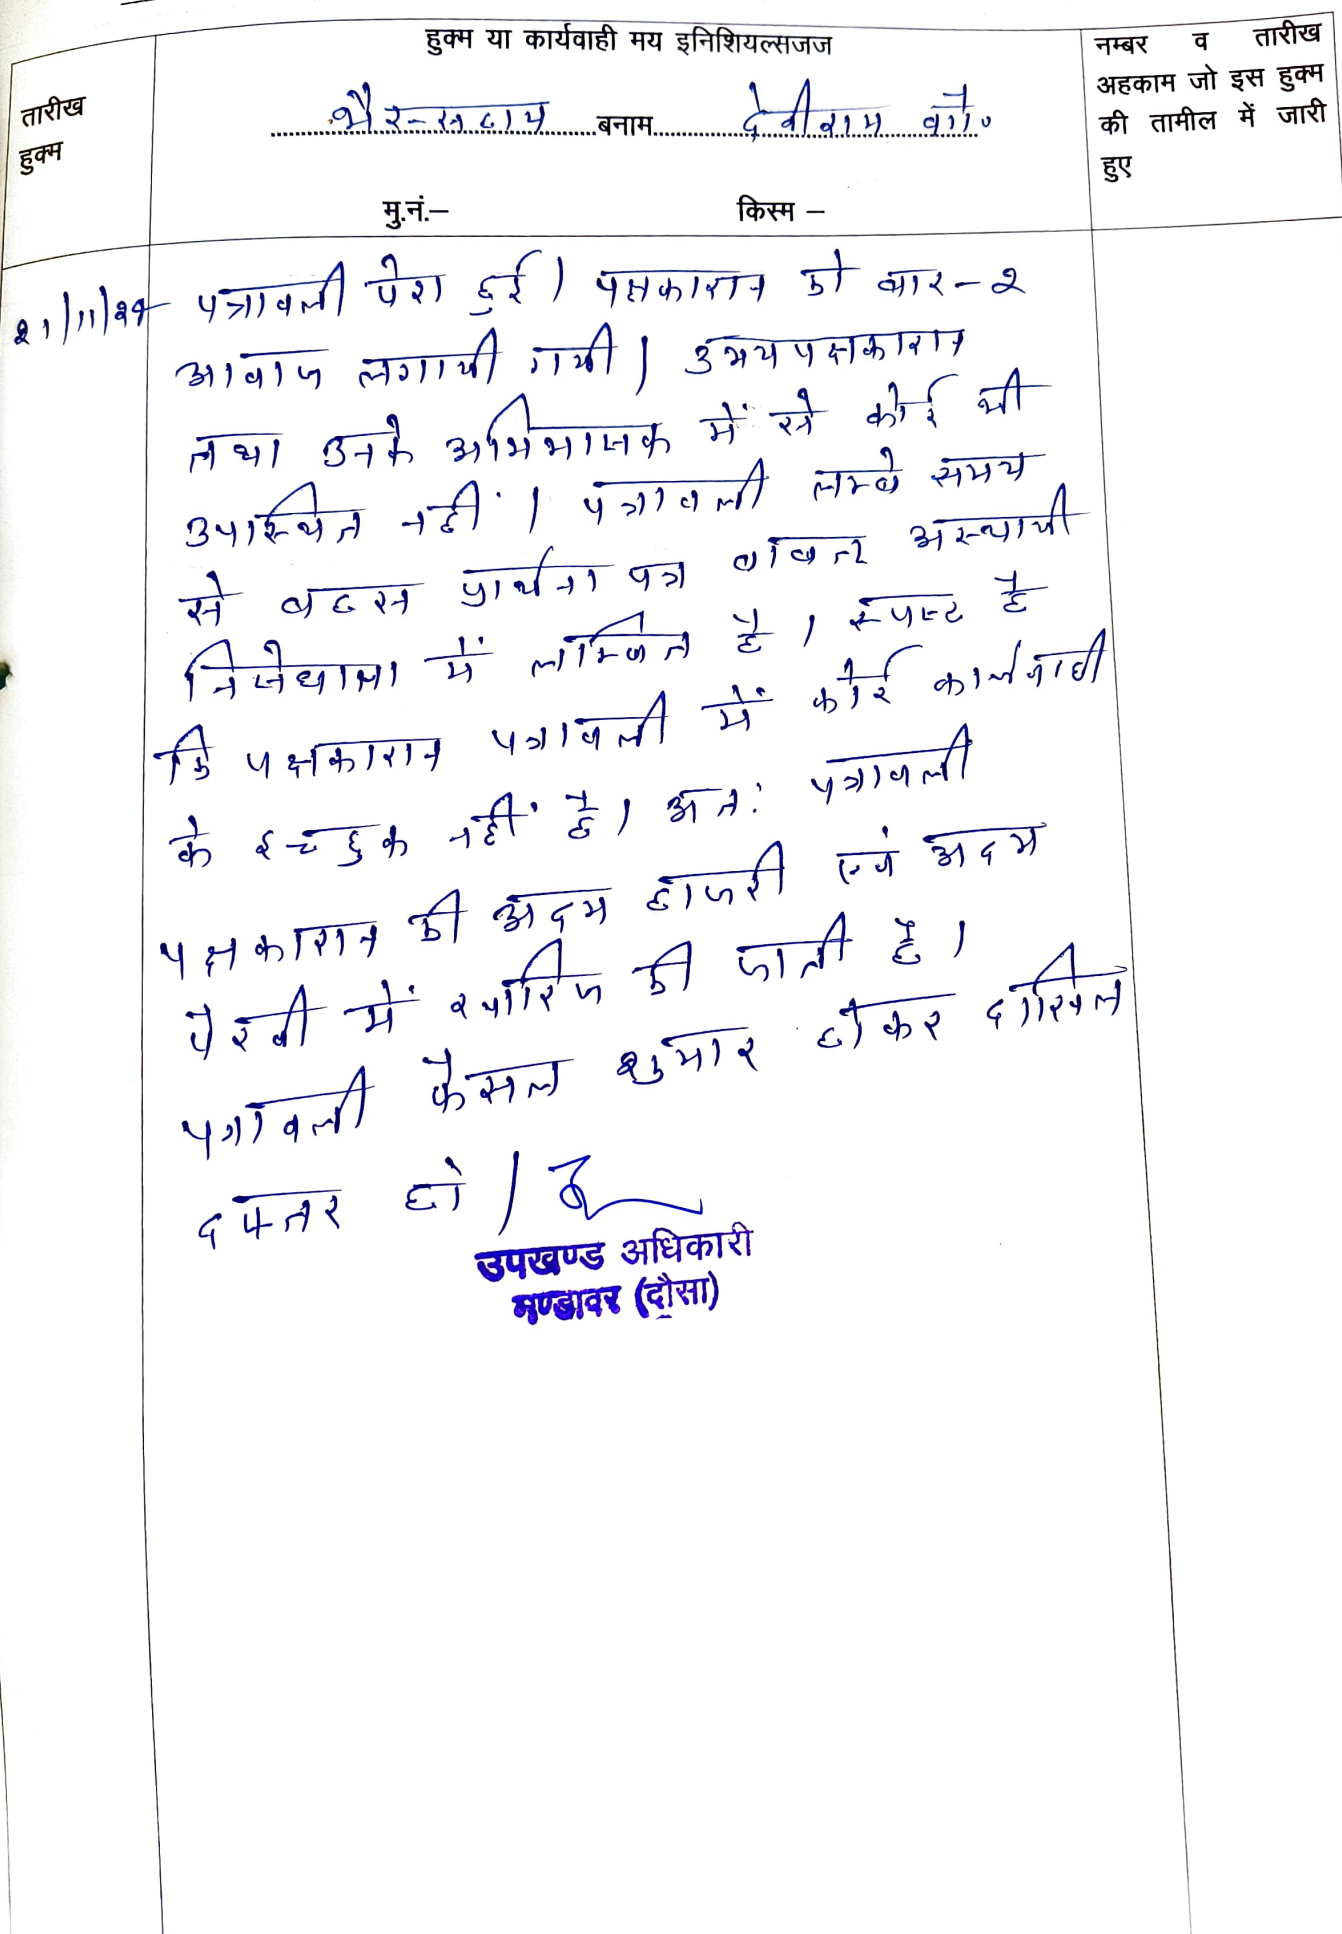 हुक्म या कार्यवाही मय इनिशियल्सजज
तारीख
हुक्म
नम्बर व तारीख
अहकाम जो इस हुक्म
की तामील में जारी
हुए
बनाम देवीराम वगै०
मु.नं.– किस्म –
२१/11/२४ पत्रावली पेश हुई। पक्षकारान को बार-२
आवाज लगायी गयी। उभयपक्षकारान
तथा उनके अभिभाषक में से कोई भी
उपस्थित नहीं। पत्रावली लम्बे समय
से बहस प्रार्थना पत्र बाबत अस्थायी
निषेधाज्ञा में लम्बित है। स्पष्ट है
कि पक्षकारान पत्रावली में कोई कार्यवाही
के इच्छुक नहीं है। अतः पत्रावली
पक्षकारान की अदम हाजरी एवं अदम
पैरवी में खारिज की जाती है।
पत्रावली फैसल शुमार होकर दाखिल
दफ्तर हो।
उपखण्ड अधिकारी
मण्डावर (दौसा)